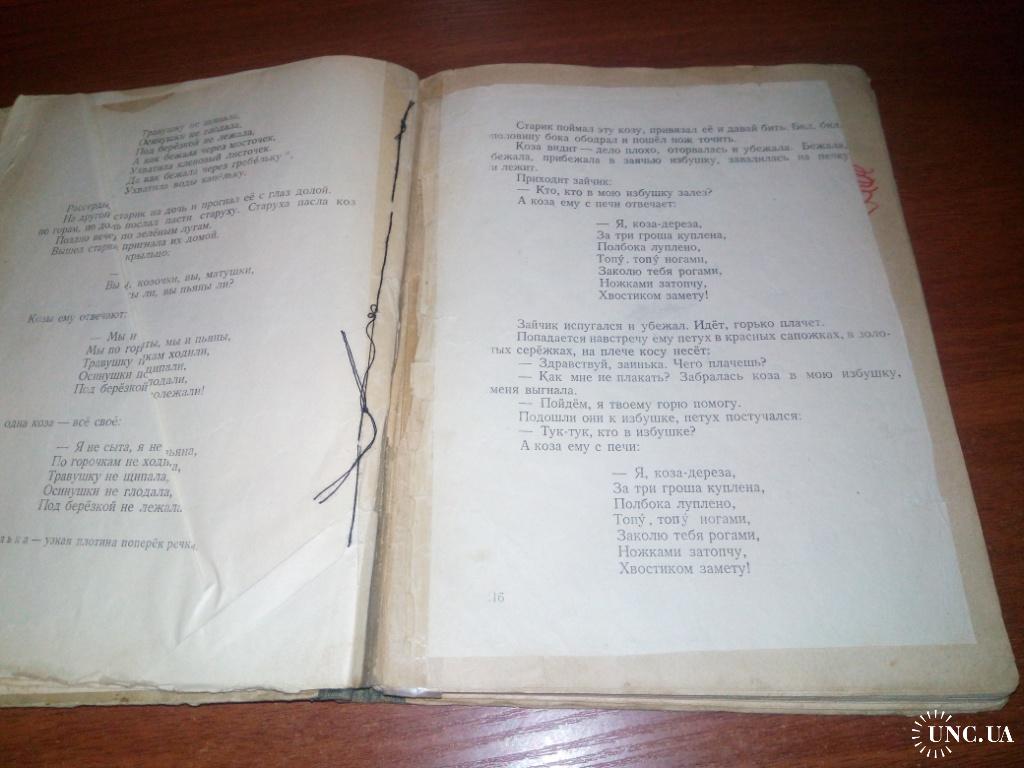 Травушку не щипала,
Осинушки не глодала,
Под берёзкой не лежала,
А как бежала через мосточек,
Ухватила кленовый листочек,
Да как бежала через гребельку *,
Ухватила воды капельку.
старик на дочь и прогнал её с глаз долой.
На другой послал пасти старуху. Старуха пасла коз
по горам, по до по зелёным лугам.
Поздно вече пригнала их домой.
Вышел стари крыльцо:
—
Вы козочки, вы, матушки,
ы ли, вы пьяны ли?
Козы ему отвечают:
— Мы и ты, мы и пьяны,
Мы по гор кам ходили,
Травушку щипали,
Осинушки глодали,
Под берёзкой олежали!
одна коза — всё своё:
— Я не сыта, я не пьяна,
По горочкам не ходила,
Травушку не щипала,
Осинушки не глодала,
Под берёзкой не лежала.
лька — узкая плотина поперёк речки.
Старик поймал эту козу, привязал её и давай бить. Бил, бил,
половину бока ободрал и пошёл нож точить.
Коза видит — дело плохо, оторвалась и убежала. Бежала,
бежала, прибежала в заячью избушку, завалилась на печку
и лежит.
Приходит зайчик:
— Кто, кто в мою избушку залез?
А коза ему с печи отвечает:
— Я, коза-дереза,
За три гроша куплена,
Полбока луплено,
Топу́, топу́ ногами,
Заколю тебя рогами,
Ножками затопчу,
Хвостиком замету!
Зайчик испугался и убежал. Идёт, горько плачет.
Попадается навстречу ему петух в красных сапожках, в золо-
тых серёжках, на плече косу несёт:
— Здравствуй, заинька. Чего плачешь?
— Как мне не плакать? Забралась коза в мою избушку,
меня выгнала.
— Пойдём, я твоему горю помогу.
Подошли они к избушке, петух постучался:
— Тук-тук, кто в избушке?
А коза ему с печи:
— Я, коза-дереза,
За три гроша куплена,
Полбока луплено,
Топу́, топу́ ногами,
Заколю тебя рогами,
Ножками затопчу,
Хвостиком замету!
16
UNC.UA